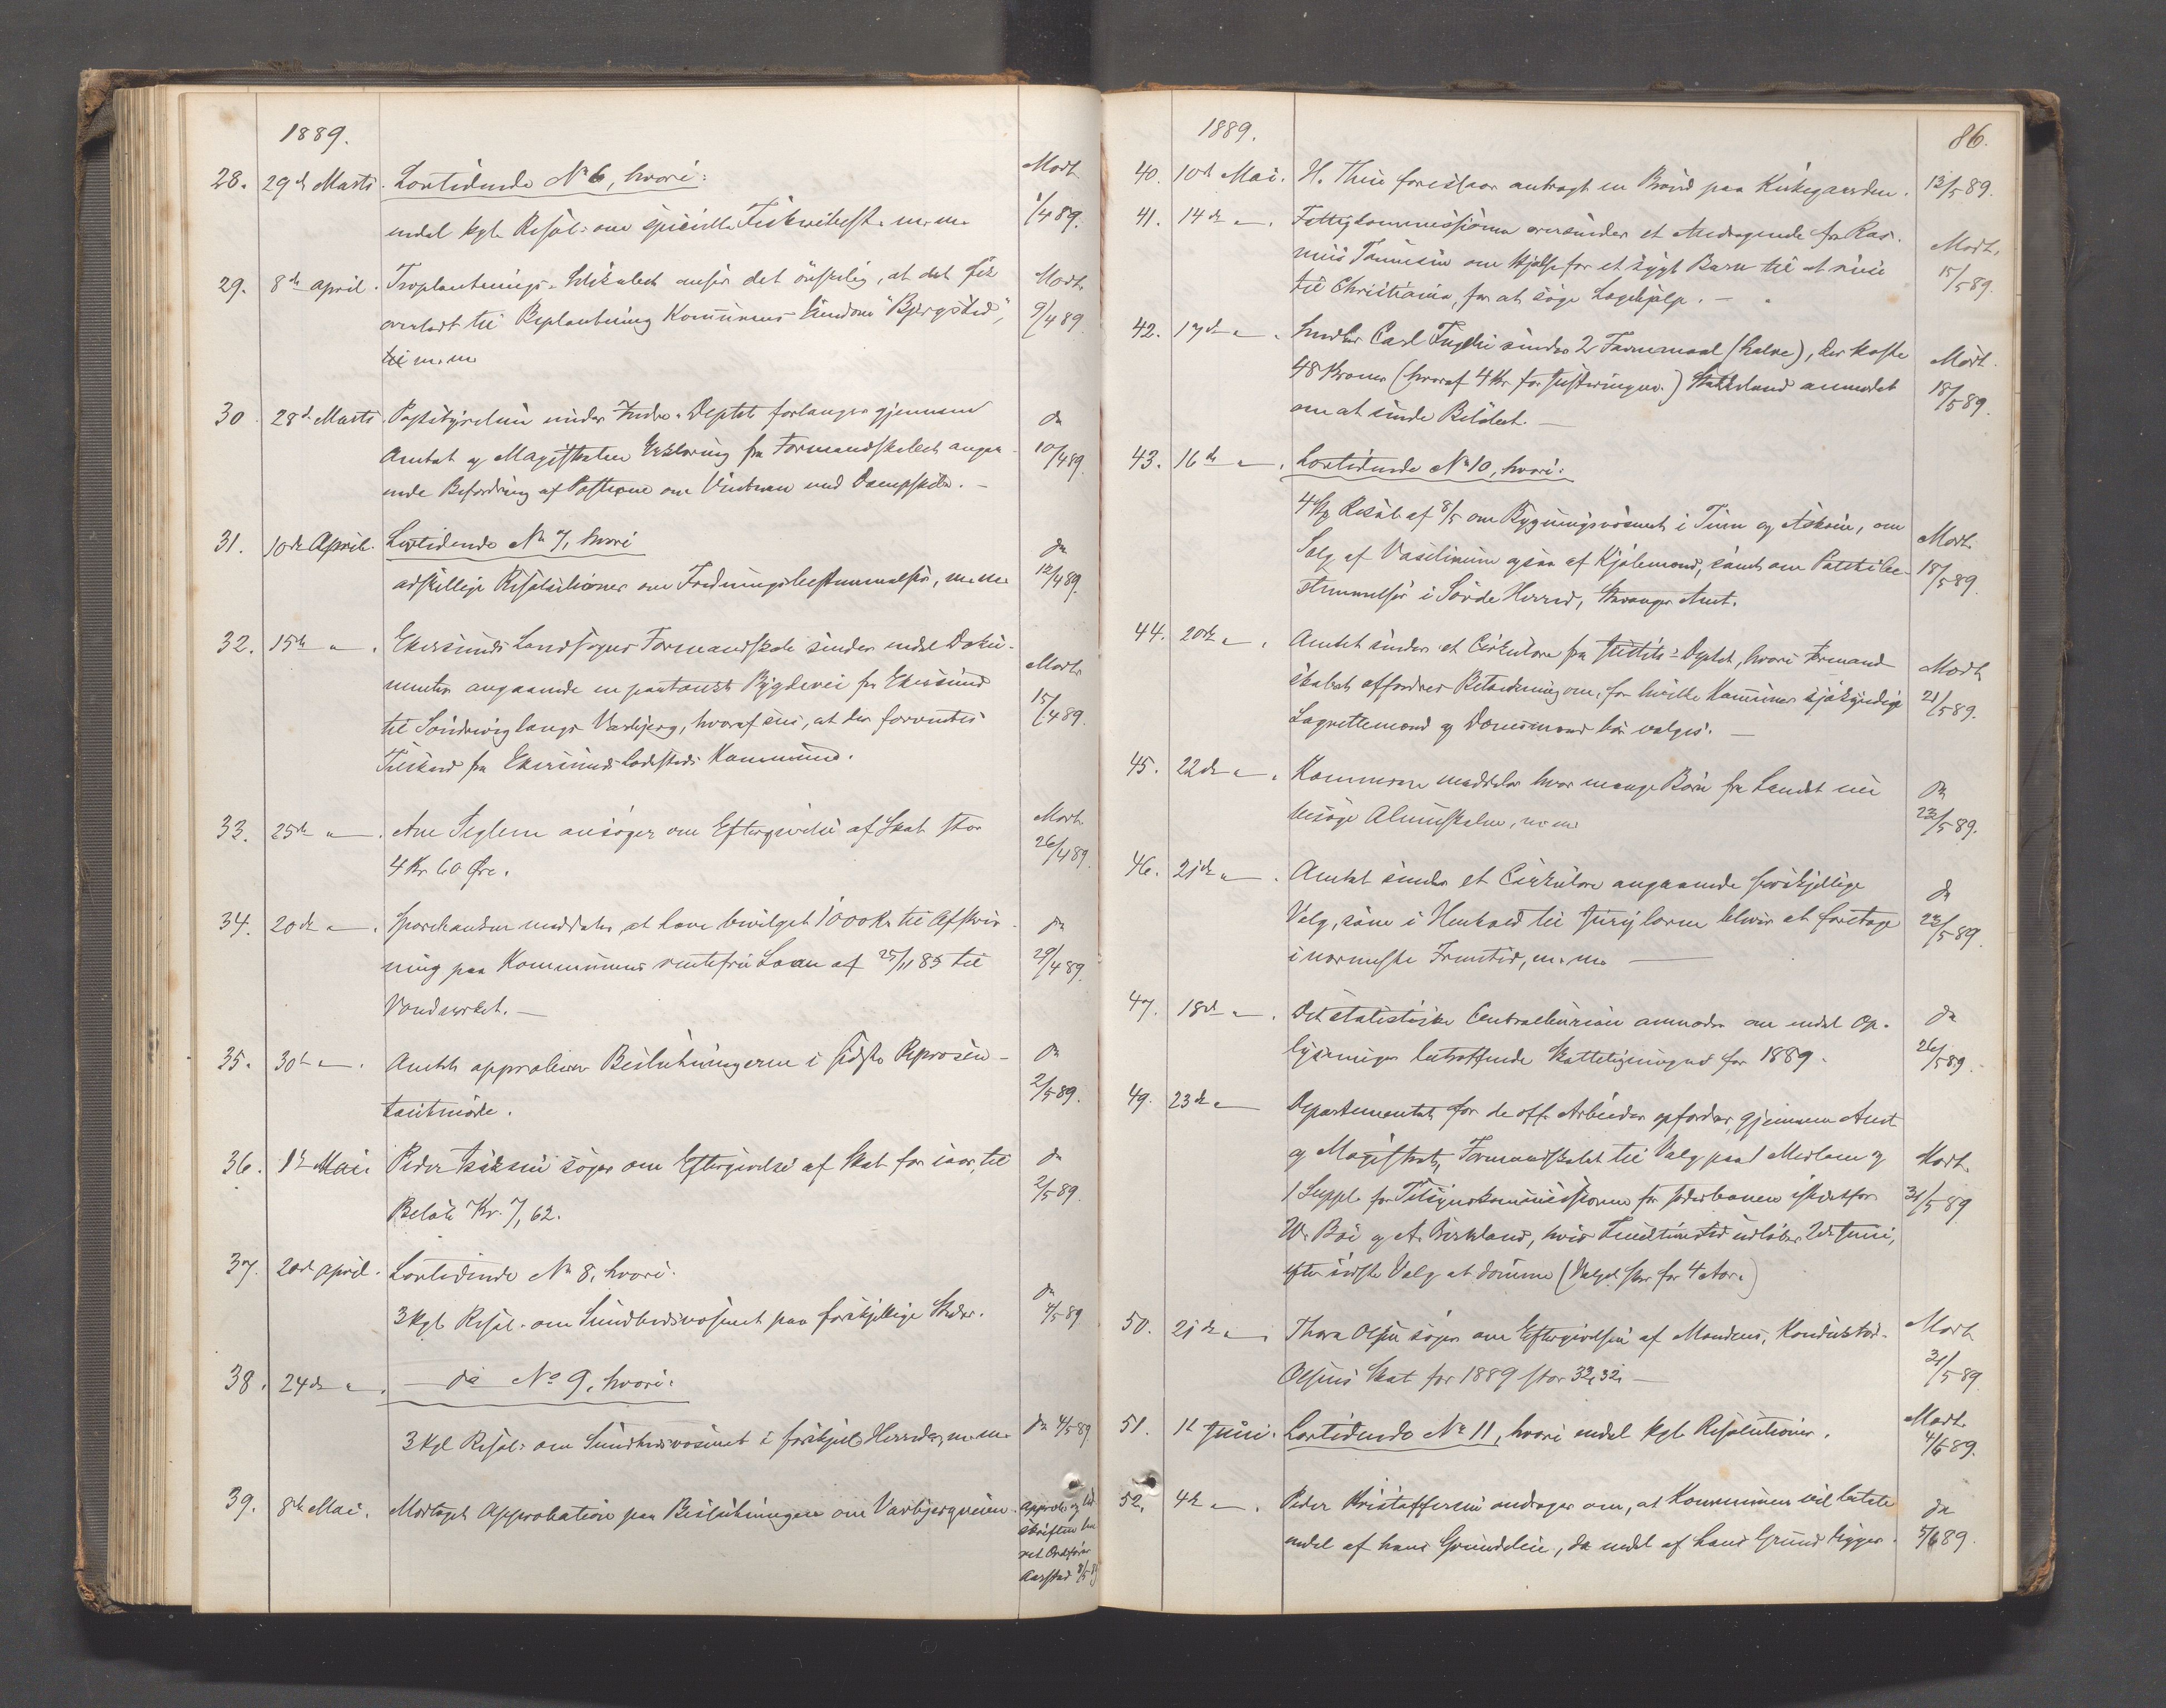 1889.
28. 29de Marts. Lovtidende No 6, hvori: Modt.
endel kgl. Resol. om specielle Fiskeribest. m.m. 1/4 89.
29. 8de April. Træplantnings-Selskabet anser det ønskelig, at det fik Modt.
overladt til Beplantning Kommunens Eiendom "Bjergsted", 9/4 89.
til m.m
30. 28de Marts. Poststyrelsen under Indre-Deptet forlanger gjennem do
Amtet og Magistraten Erklæring fra Formandskabet angaa- 10/4 89.
ende Befordring af Posterne om Vinteren med Dampskibe. —
31. 10de April. Lovtidende No 7, hvori do
adskillige Resolutioner om Fredningsbestemmelser, m.m. 12/4 89.
32. 15de " . Ekersunds Landsogns Formandskab sender endel Doku-
menter angaaende en paatænkt Bygdevei fra Ekersund Modt.
til Søndrevig langs Varbjerg, hvoraf sees, at der forventes 15/4 89.
Tilskud fra Ekersunds Ladesteds Kommune.
33. 25de " . Ane Seglem ansøger om Eftergivelse af Skat stor Modt.
4 Kr. 60 Øre. 26/4 89.
34. 20de " . Sparebanken meddeler, at have bevilget 1000 Kr. til Afskriv- do
ning paa Kommunens rentefrie Laan af 25/11 85 til 29/4 89.
Vandverket. —
35. 30te " . Amtet approberer Beslutningerne i sidste Repræsen- do
tantmøde. 2/5 89.
36. 1te Mai Peder Isaksen søger om Eftergivelse af Skat for iaar, til do
Beløb Kr. 7,62. 2/5 89.
37. 20de April. Lovtidende No 8, hvori:
3 kgl. Resol. om Sundhedsvæsenet paa forskjellige Steder. do 4/5 89
38. 24de " . — do No 9, hvori:
3 kgl. Resol. om Sundhedsvæsenet i forskjel. Herreder, m.m. do 4/5 89
39. 8de Mai. Modtaget Approbation paa Beslutningen om Varbjergveien. Approb. og
skriften
Ordfører
Aarstad 8/5 89
1889. 86.
40. 10de Mai. H. Thu foreslaar anbragt en Brønd paa Kirkegaarden. 13/5 89.
41. 14de " . Fattigkommissionen oversender et Andragende fra Ras- Modt.
mus Tønnesen om Hjælp for et sygt Barn til at reise 15/5 89.
til Christiania, for at søge Lægehjælp. —
42. 17de " . Carl sender 2 Favnemaal (halve), der koste Modt.
48 Kroner (hvoraf 4 Kr. for Justeringen.) anmodet 18/5 89.
om at sende Beløbet. —
43. 16de " . Lovtidende No 10, hvori:
4 kgl. Resol. af 8/5 om Bygningsvæsenet i Tinn og Askim, om Modt.
Salg af Vaselinum ogsaa af Kjøbmænd, samt om Politibe- 18/5 89.
stemmelser i Søvde Herred, Stavanger Amt.
44. 20de " . Amtet sender et Cirkulære fra Justits-Deptet, hvori Formand-
skabet affordres Betænkning om, for hvilke Kommuner sjøkyndige Modt.
Lagrettemænd og Domsmænd bør vælges. — 21/5 89.
45. 22de " . Kommunen meddeler hvor mange Børn fra Landet nu do
besøge Almueskolen, m.m. 23/5 89.
46. 21de " . Amtet sender et Cirkulære angaaende forskjellige do
Valg, som i Henhold til Juryloven bliver at foretage 23/5 89.
i nærmeste Fremtid, m.m. —
47. 18de " . Det statistiske Centralbureau anmoder om endel Op- do
lysninger betræffende Skatteligningen for 1889. 26/5 89.
49. 23de " Departementet for de off. Arbeider opfordrer, gjennem Amt
og Magistrat, Formandskabet til Valg paa 1 Medlem og Modt.
1 Suppl. for Tilsynskommissionen for Jæderbanen istedetfor 31/5 89
W. Bøe og A. Birkland, hvis Funktionstid udløber 2de Juni,
efter sidste Valg at dømme (Valget sker for 4 Aar.)
50. 21de " . Thora Olsen søger om Eftergivelse af Mandens, Konduktør Modt.
Olsens Skat for 1889 stor 32,32. — 31/5 89
51. 1te Juni. Lovtidende No 11, hvori endel kgl. Resolutioner. Modt. 4/6 89.
52. 4de " . Peder Kristoffersen andrager om, at Kommunen vil betale do
endel af hans Grundleie, da endel af hans Grund ligger 5/6 89.